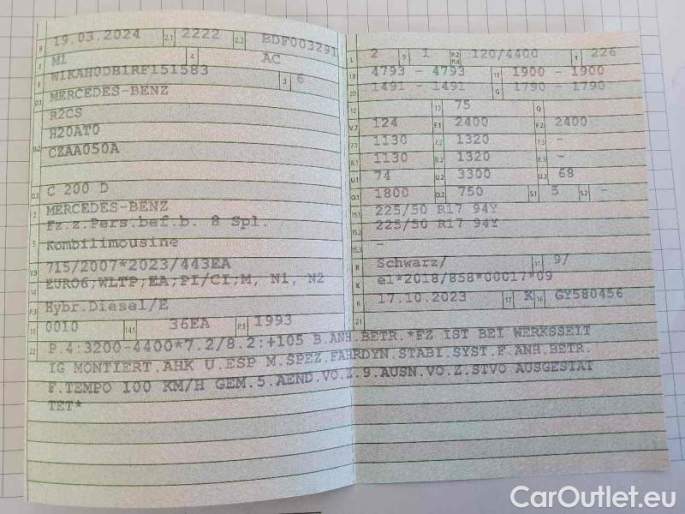 B 19.03.2024 2.1 2222 2.2 BDF003291
J M1 4 AC
E W1KAH0DB1RF151583 3 6
D.1 MERCEDES-BENZ
R2CS
D.2 H20AT0
CZAA050A
D.3 C 200 D
2 MERCEDES-BENZ
5 Fz.z.Pers.bef.b. 8 Spl.
Kombilimousine
V.9 715/2007*2023/443EA
14 EURO6;WLTP;EA;PI/CI;M, N1, N2
P.3 Hybr.Diesel/E
10 0010 14.1 36EA P.1 1993
L 2 9 1 P.2 P.4 120/4400 T 226
18 4793 - 4793 19 1900 - 1900
20 1491 - 1491 G 1790 - 1790
12 - 13 75 Q -
V.7 124 F.1 2400 F.2 2400
7.1 1130 7.2 1320 7.3 -
8.1 1130 8.2 1320 8.3 -
U.1 74 U.2 3300 U.3 68
O.1 1800 O.2 750 S.1 5 S.2 -
15.1 225/50 R17 94Y
15.2 225/50 R17 94Y
15.3 -
R Schwarz/ 11 9/
K e1*2018/858*00017*09
6 17.10.2023 17 K 16 GY580456
21
22 P.4:3200-4400*7.2/8.2:+105 B.ANH.BETR.*FZ IST BEI WERKSSEIT
IG MONTIERT.AHK U.ESP M.SPEZ.FAHRDYN.STABI.SYST.F.ANH.BETR.
F.TEMPO 100 KM/H GEM.5.AEND.VO.Z.9.AUSN.VO.Z.STVO AUSGESTAT
TET*
CarOutlet.eu